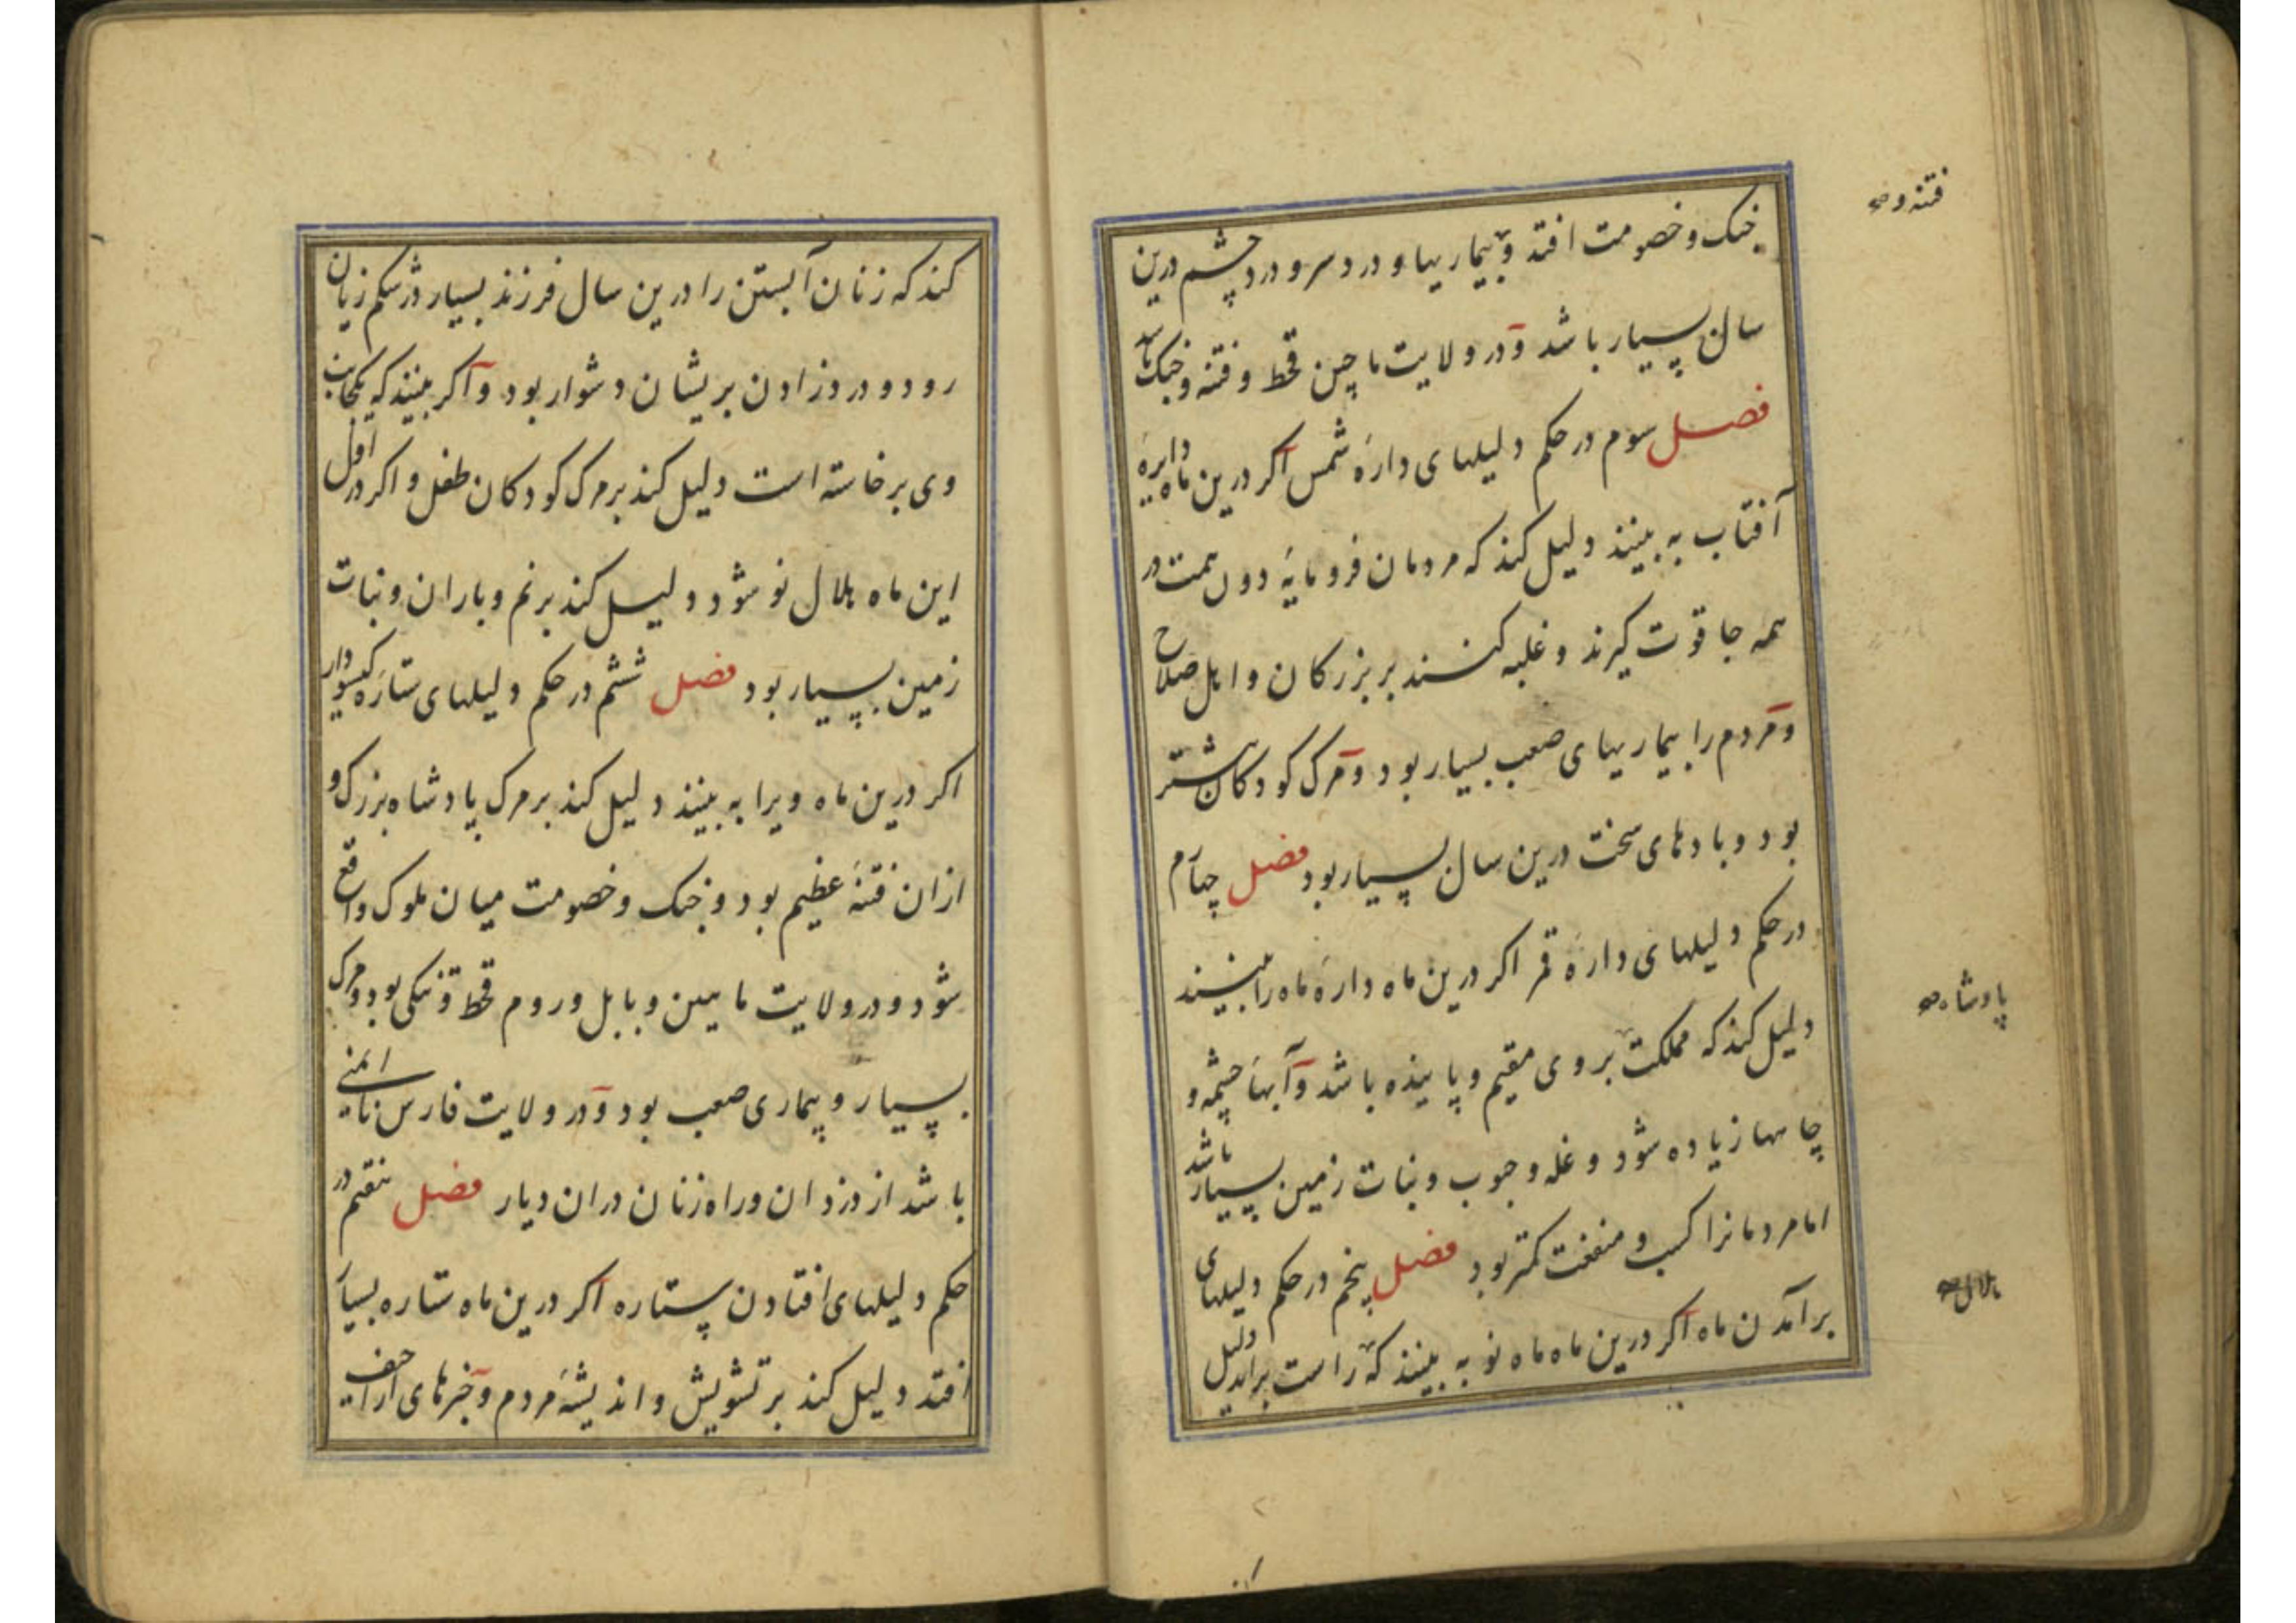 جنک و خصومت افتد و بیماریها و درد سر و درد چشم درین
سال بسیار باشد و در ولایت ماچین قحط و فتنه و جنک باشد
فصل سوم در حکم دلیلهای دارهٔ شمس اکر درین ماه دایرهٔ
آفتاب به بینند دلیل کند که مردمان فرومایهٔ دون همت در
همه جا قوت کیرند و غلبه کنند بر بزرکان و اهل صلاح
و مردم را بیماریهای صعب بسیار بود و مرک کودکان بیشتر
بود و بادهای سخت درین سال بسیار بود فصل چهارم
در حکم دلیلهای دارهٔ قمر اکر درین ماه دارهٔ ماه را ببینند
دلیل کند که مملکت بر وی مقیم و پاینده باشد و آبهاء چشمه و
چاهها زیاده شود و غله و حبوب و نبات زمین بسیار باشد
اما مردمانرا کسب و منفعت کمتر بود فصل پنجم در حکم دلیلهای
برآمدن ماه اکر درین ماه ماه نو به بینند که راست براید دلیل
فتنه و صح
پادشاه صح
هلال صح
کند که زنان آبستن را درین سال فرزند بسیار در شکم زیان
رود و درد زادن بریشان دشوار بود و اکر بینند که یکجانب
وی برخاسته است دلیل کند بر مرک کودکان طفل و اکر در اول
این ماه هلال نو شود دلیل کند بر نم و باران و نبات
زمین بسیار بود فصل ششم در حکم دلیلهای ستارهٔ کیسودار
اکر درین ماه ویرا به بینند دلیل کند بر مرک پادشاه بزرک و
ازان فتنهٔ عظیم بود و جنک و خصومت میان ملوک واقع
شود و در ولایت مابین و بابل و روم قحط و تنکی بود و مرک
بسیار و بیماری صعب بود و در ولایت فارس ناایمنی
باشد از دزدان و راه زنان دران دیار فصل هفتم در
حکم دلیلهای افتادن ستاره اکر درین ماه ستاره بسیار
افتد دلیل کند بر تشویش و اندیشهٔ مردم و خبرهای اراجیف